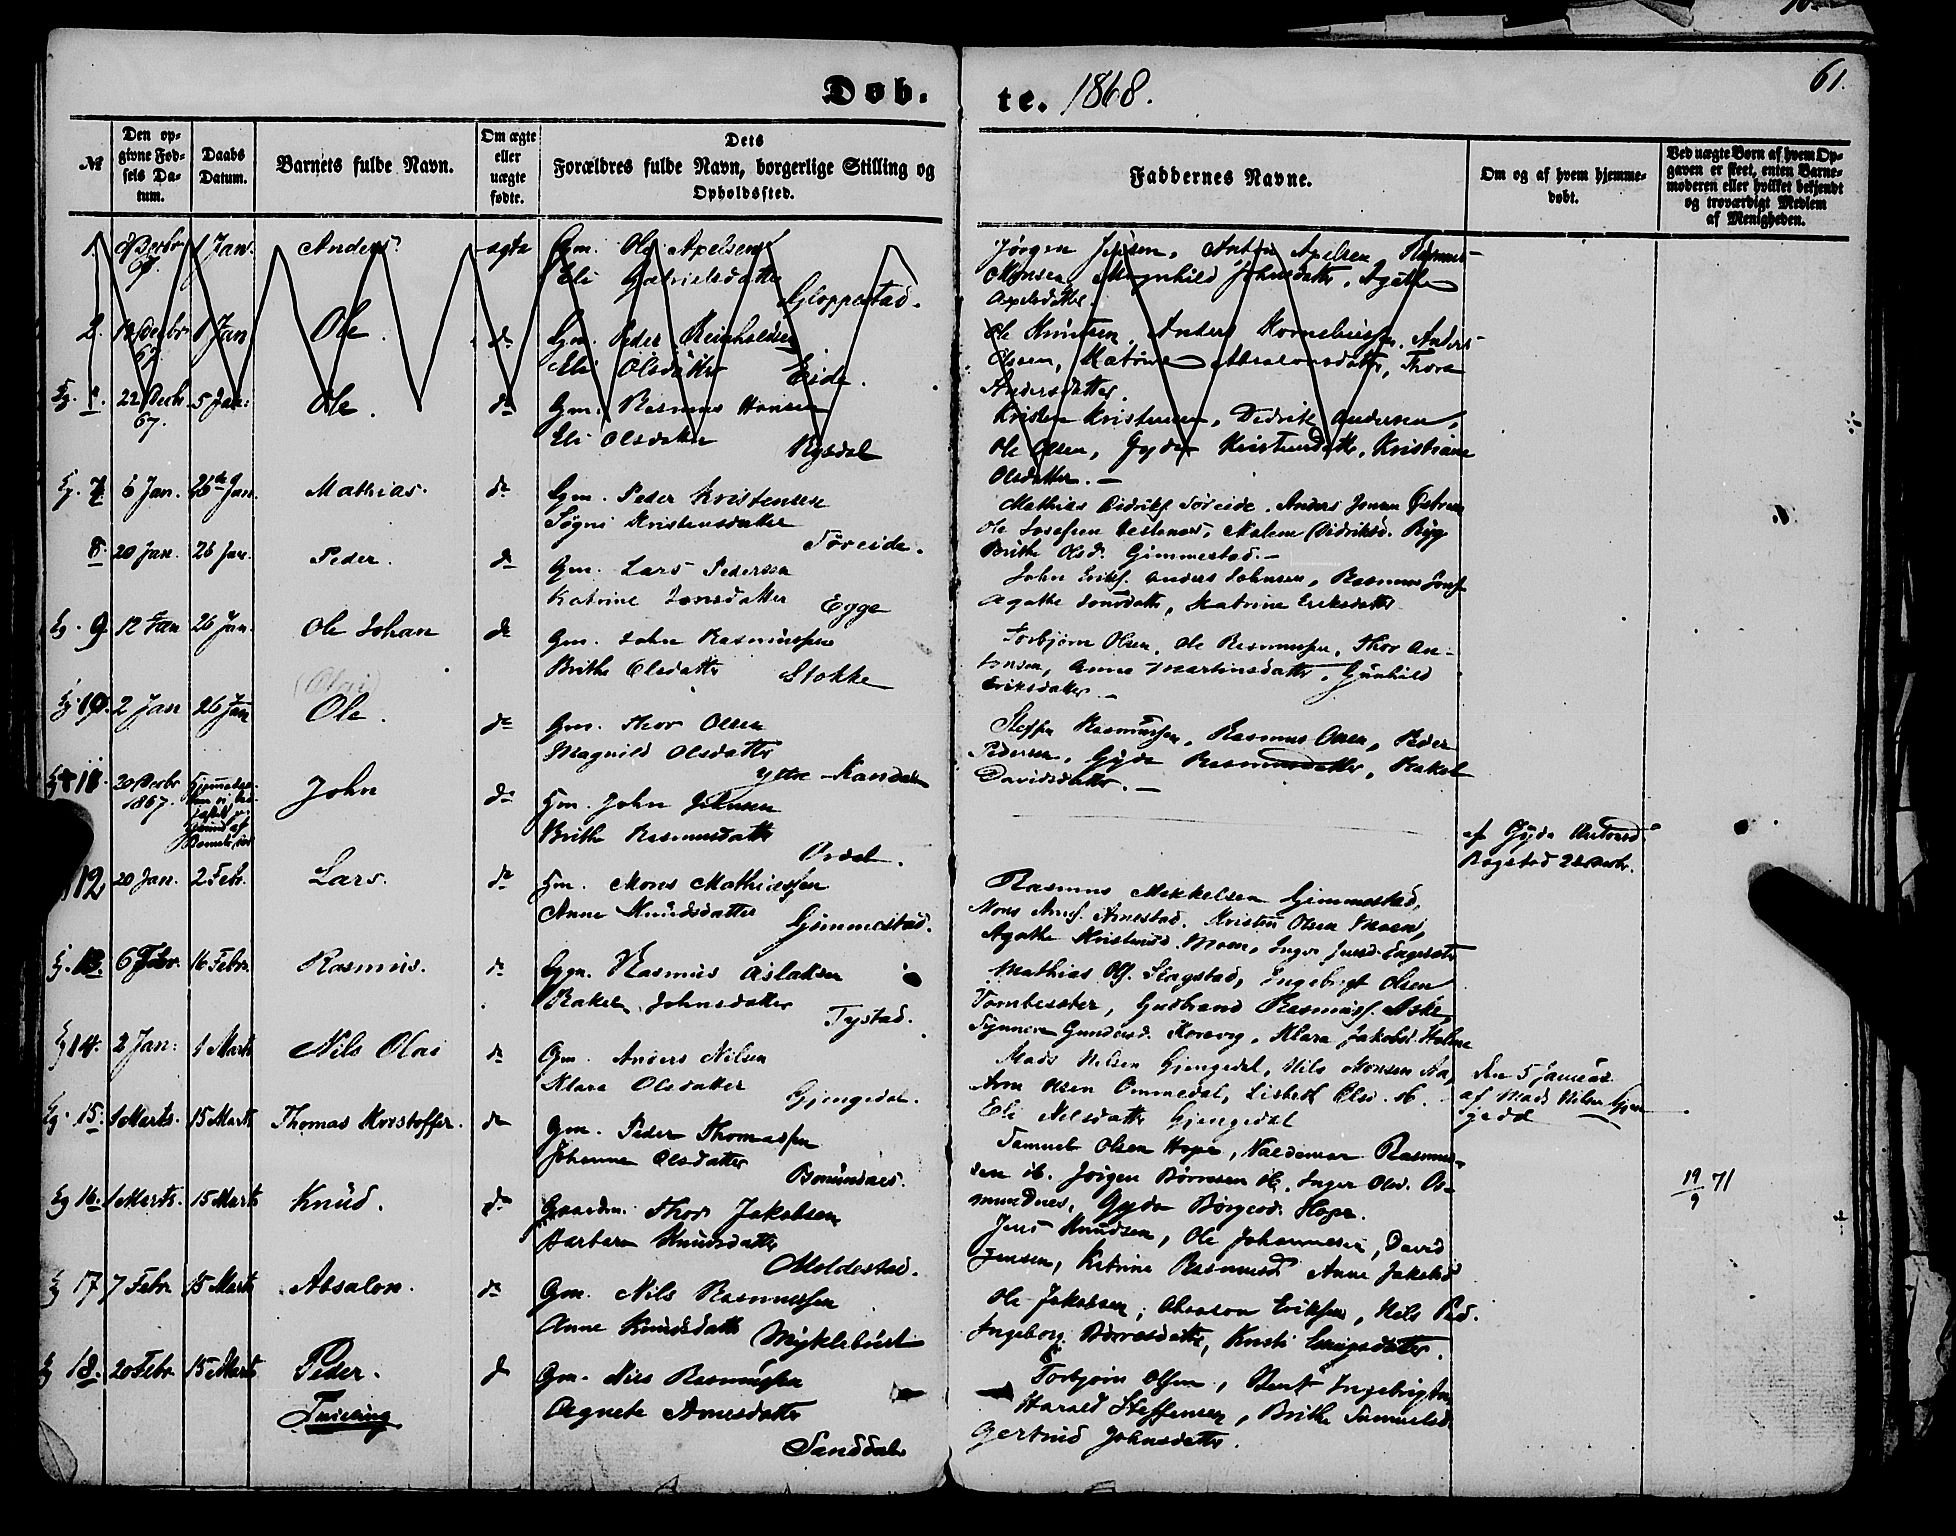 61.
Døb-
te. 1868.
№
Den op-
givne Fød-
sels Da-
tum.
Daabs
Datum.
Barnets fulde Navn.
Om ægte
eller
uægte
fødte.
Dets
Forældres fulde Navn, borgerlige Stilling og
Opholdssted.
Faddernes Navne.
Om og af hvem hjemme-
døbt.
Ved uægte Børn af hvem Op-
gaven er skeet, enten Barne-
moderen eller hvilket bekjendt
og troværdigt Medlem
af Menigheden.
1. Decbr 67. 1 Jan. Anders. ægte Gm. Ole Axelsen
Eli Gabrielsdatter
Gloppestad.
Jørgen Jensen, Anton Axelsen, Rasmus
Monsen, Magnhild Johnsdatter, Agathe
Axelsdatter.
2. Decbr 67 1 Jan Ole. do Gm. Peder Reinholdsen
Eli Olsdatter Eide.
Ole Knudsen, Anders Korneliussen, Anders
Olsen, Katrine Absalonsdatter, Thora
Andersdatter.
22 Decbr 67. 5 Jan: Ole. do Gm. Rasmus Hansen
Eli Olsdatter Rysdal
Kristen Kristensen, Didrik Andersen,
Ole Olsen, Gyda Kristensdatter, Kristiane
Olsdatter. —
7. 6 Jan. 26de Jan. Mathias. do Gm. Peder Kristensen
Søgni Kristensdatter
Søreide.
Mathias Didriks. Søreide, Anders Jensen
Ole Josefsen Vestenas, Malene Didriksd. Ryg
Brithe Olsd. Gimmestad. —
8. 20 Jan. 26 Jan. Peder. do Gm. Lars Pedersen
Katrine Jonsdatter Egge
John Eriks. Anders Johnsen, Rasmus Jons.
Agathe Jonsdatter, Katrine Eriksdatter
9 12 Jan 26 Jan. Ole Johan do Gm. John Rasmussen
Brithe Olsdatter Stokke
Torbjørn Olsen, Ole Rasmussen, Thor An-
tonsen, Anna Martinsdatter, Gunhild
Eriksdatter. —
(Olai)
10. 2 Jan 26 Jan Ole. do Gm. Thor Olsen
Magnild Olsdatter
Ytre Kandal
Steffen Rasmussen, Rasmus Olsen, Peder
Pedersen, Gyda Rasmusdatter, Rakel
Davidsdatter. —
11. 20 Decbr 1867. John do Gm. John Johnsen
Brithe Rasmusdatter
Ordal.
af Gyda Antonsd.
Rogstad 22 Decbr.
12 20 Jan. 2 Febr. Lars. do Gm. Mons Mathiassen
Anne Knudsdatter Gimmestad.
Rasmus Mikkelsen Gimmestad,
Mons Arnes. Arnestad, Kristen Olsen Moen,
Agathe Kristensd. Moen, Inger Jensd. Engesæter
13. 6 Febr. 16 Febr. Rasmus. do Gm. Rasmus Aslaksen
Rakel Johnsdatter Tystad.
Mathias Ols. Skagstad, Ingebrigt Olsen
Tombesæter, Gudbrand Rasmuss. Aske,
Synneve Gundersd. Korsvog, Klara Jakobsd. Holme
14. 2 Jan: 1 Marts Nils Olai do Gm. Anders Nilsen
Klara Olsdatter Gjengedal.
Mads Nilsen Gjengedal, Nils Monsen Aa,
Arne Olsen Ommedal, Lisbeth Olsd. ib.
Eli Nilsdatter Gjengedal
den 5 Januar
af Mads Nilsen Gjen
gedal
15. 1 Marts. 15 Marts Thomas Kristoffer. do Gm. Peder Thomassen
Johanne Olsdatter
Osmundnes.
Samuel Olsen Hope, Valdemar Rasmus-
sen ib. Jørgen Børresen ib. Inger Olsd. Os-
mundnes, Gyda Børgesd. Hope.
19/9 71
16. 1 Marts. 15 Marts Knud. do Gaardm. Thor Jakobsen
Barbara Knudsdatter
Moldestad.
Jens Knudsen, Ole Johannesen, David
Jensen, Katrine Rasmusd. Anne Jakobsd
17 7 Febr 15 Marts Absalon. do Gm. Nils Rasmussen
Anne Knudsdatter Myklebust
Ole Jakobsen, Absalon Eriksen, Nils Ped.
Ingeborg Børresdatter, Kristi
18. 20 Febr 15 Marts Peder. do Gm. Nils Rasmussen
Tvilling
Agnete Arnesdatter
Sanddal
Torbjørn Olsen, Bent Ingebrigtsen
Harald Steffensen, Brithe Samuelsd.
Gertrud Johnsdatter.